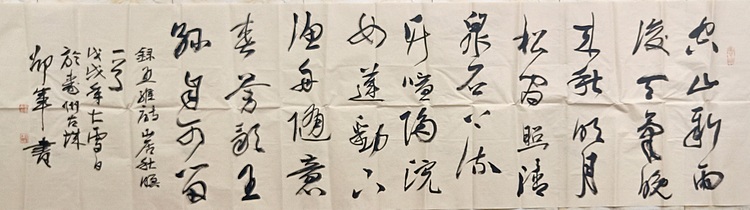 空山新雨
後天氣晚
来秋明月
松間照清
泉石上流
竹喧歸浣
女蓮動下
漁舟隨意
春芳歇王
孫自可留
錄王維詩山居秋暝
一首
戊戌年大雪日
於州古城
書